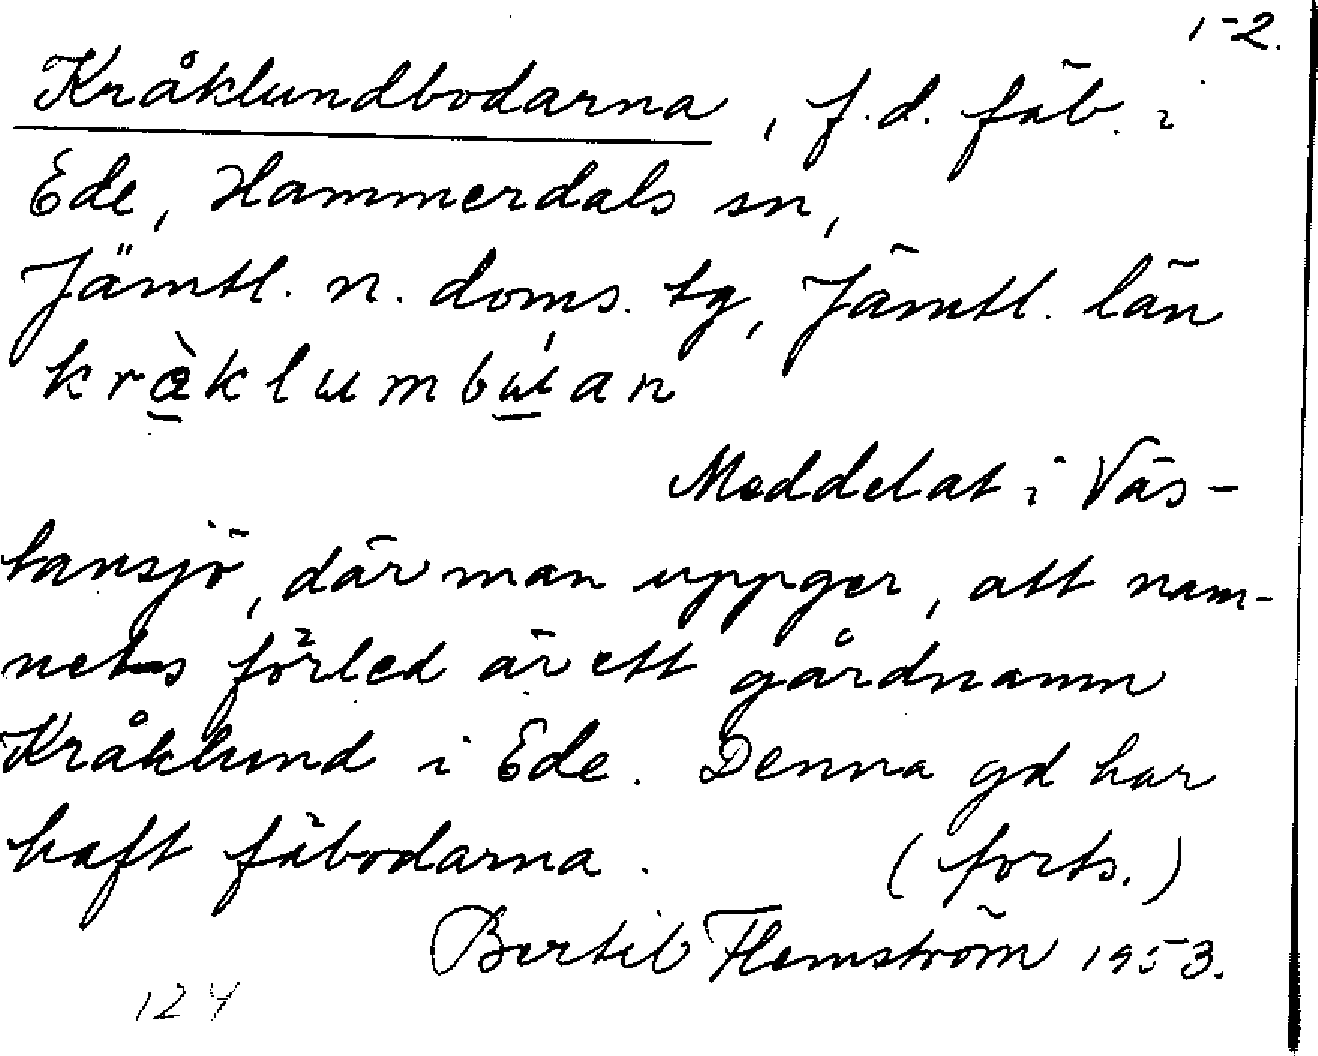 1-2.
Kråklundbodarna, f.d. fäb. i
Ede, Hammerdals sn,
Jämtl. n. doms. tg, Jämtl. län
Meddelat i Väs-
tansjö, där man uppger, att nam-
nets förled är ett gårdnamn
Kråklund i Ede. Denna gd har
haft fäbodarna. (forts.)
Bertil Flemström 1953.
124